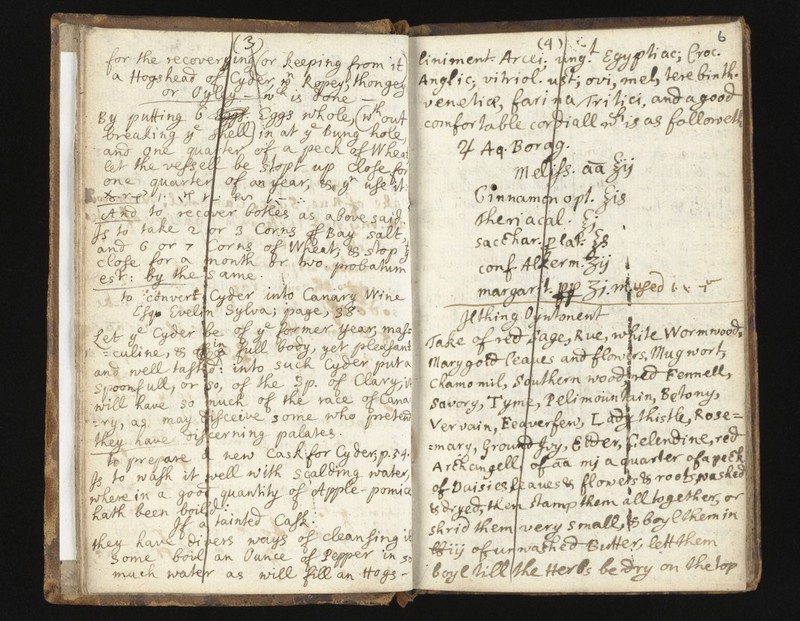 (3)
for the recovering (or keeping from it)
a Hogshead of Cyder, wn Ropey, thonge,
or Oyly wch is done
By putting 6 Eggs whole, (wthout
breaking ye shell in at ye Bung hole,
and one quarter of a peck of Wheat
let the vessell be stopt up close for
one quarter of an year, & yn use it:
And to recover botles as above said.
Is to take 2 or 3 Corns of Bay salt,
and 6 or 7 Corns of Wheat, & stop
close for a month or two, probatum
est: by the same.
to convert Cyder into Canary Wine
Esqr Evelin Sylva; page, 38
Let ye Cyder be of ye former year; mas=
=culine, & in full body, yet pleasant
and well tasted: into such Cyder put a
spoonfull, or so, of the Sp. of Clary; it
will have so much of the race of Cana
=ry, as may deceive some who pretend
they have discerning palates.
to prepare a new Cask for Cyder, p. 84.
Is to wash it well with scalding water,
where in a good quantity of Apple-pomice
hath been boiled:
If a tainted Cask:
they have divers ways of cleansing it
some boil an Ounce of Pepper in so
much water as will fill an Hogs-
(4)
6
liniment. Arcei. ungt. Egyptiac, Croc.
Anglic, vitriol. ust, ovi, mel, terebinth.
venetiæ, farina Tritici, and a good
comfortable cordiall wch is as followeth
♃ Aq. Borag.
Meliss. aā ʒij
Cinnamon opt. ʒis
theriacal. ʒi
sacchar. plat. ʒs
conf. Alkerm. ʒij
margarit. pp ʒj. m used
Itthing Oyntonent
Take of red Sage, Rue, white Wormwood,
Marygold leaves and flowers, Mugwort,
Chamomil, Southern wood, red Fennell,
Savory, Tyme, Pelimountain, Betony,
Vervain, Feaverfew, Lady thistle, Rose=
=mary, Ground Ivy, Elder, Celendine, red
Archangell of aā mj a quarter of a peck
of Daisies leaves & flowers & roots, washed
& dryed, then stamp them all together, or
shrid them very small, & boyl them in
iij of unwashed Butter, lett them
boyl till the Herbs be dry on the top